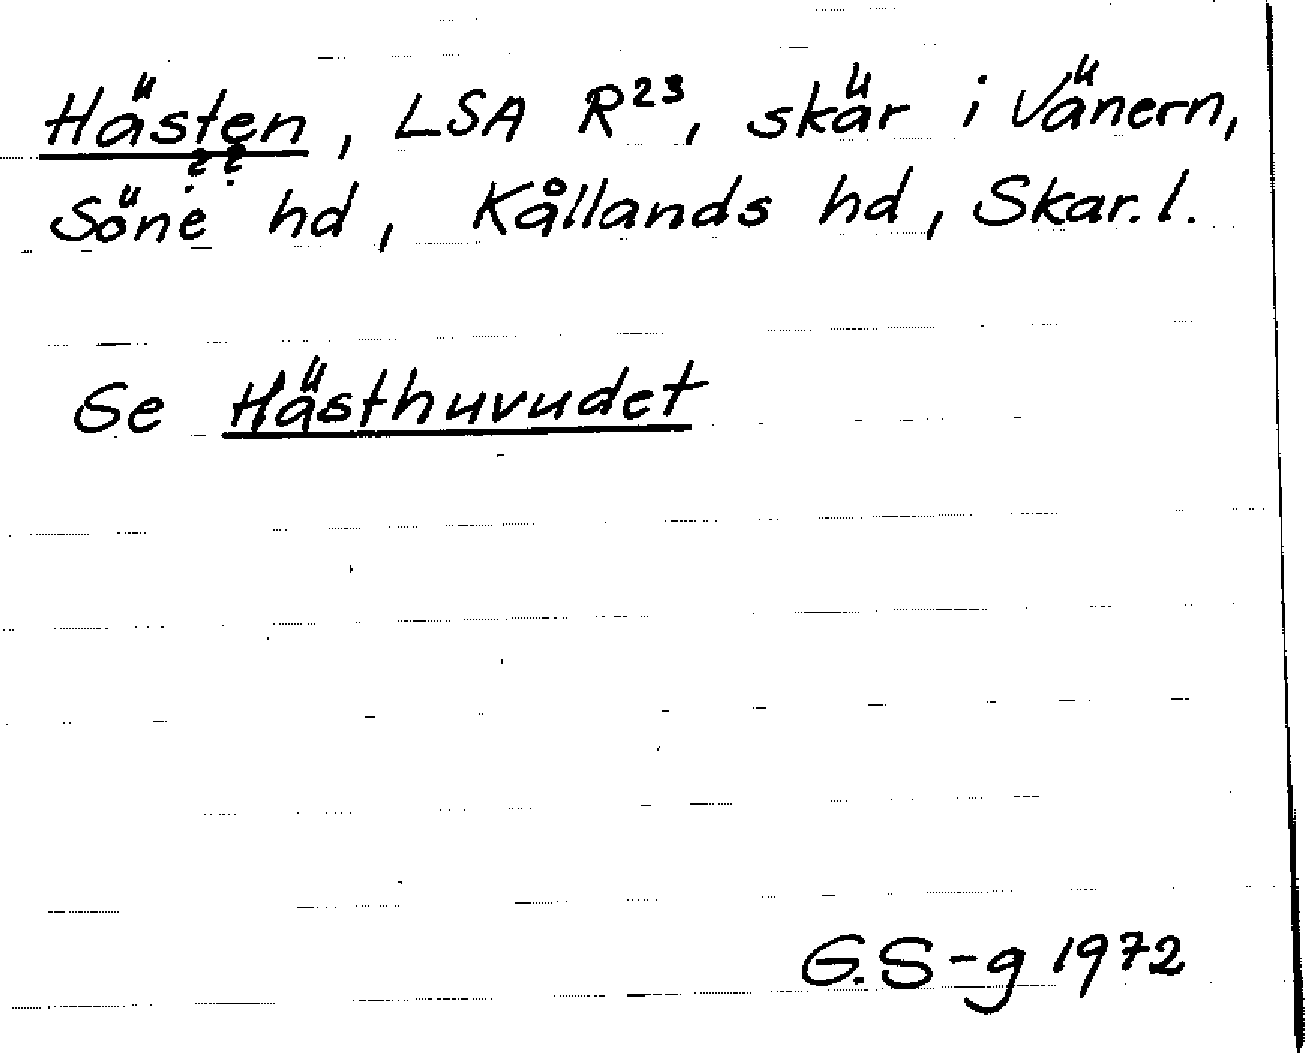 Hästen, LSA R²³, skär i Vänern,
??
Söne hd, Kållands hd, Skar. l.
Se Hästhuvudet
G.S-g 1972